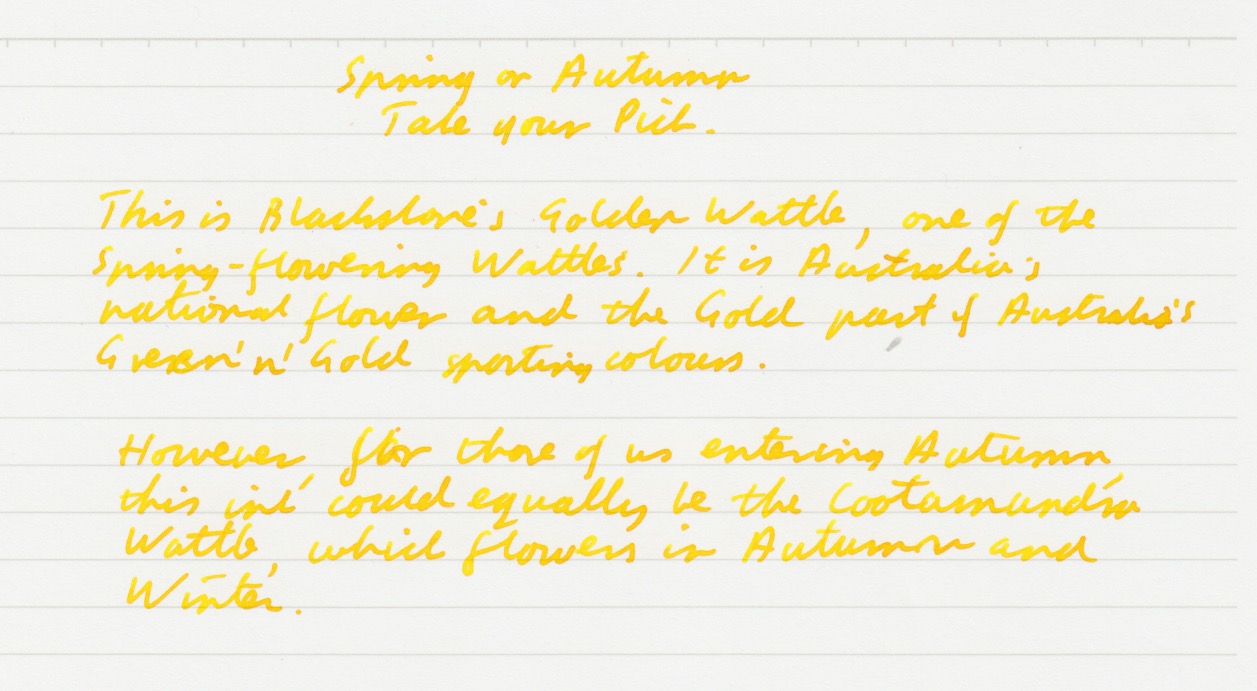 Spring or Autumn
Take your Pick.
This is Blackstone's Golden Wattle, one of the
Spring-flowering Wattles. It is Australia's
national flower and the Gold part of Australia's
Green 'n' Gold sporting colours.
However, for those of us entering Autumn
this ink could equally be the Cootamundra
Wattle, which flowers in Autumn and
Winter.